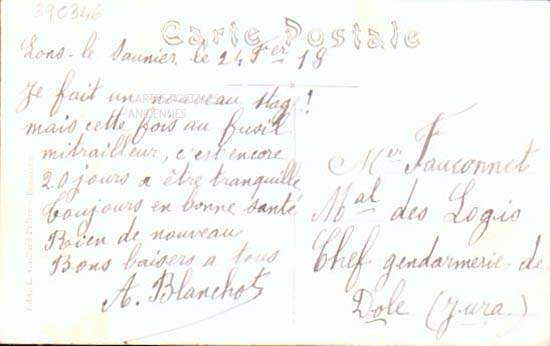 390346
Carte Postale
Lons-le Saunier le 24 Fer 18
Je fait un nouveau stage!
CARTES POSTALES
ANCIENNES
mais cette fois au fusil
mitrailleur, c'est encore
20 jours a être tranquille
Toujours en bonne santé
Rien de nouveau
Bons baisers a tous
A. Blanchot
Mer Fauconnet
Mal des Logis
Chef gendarmerie de
Dole (Jura.)